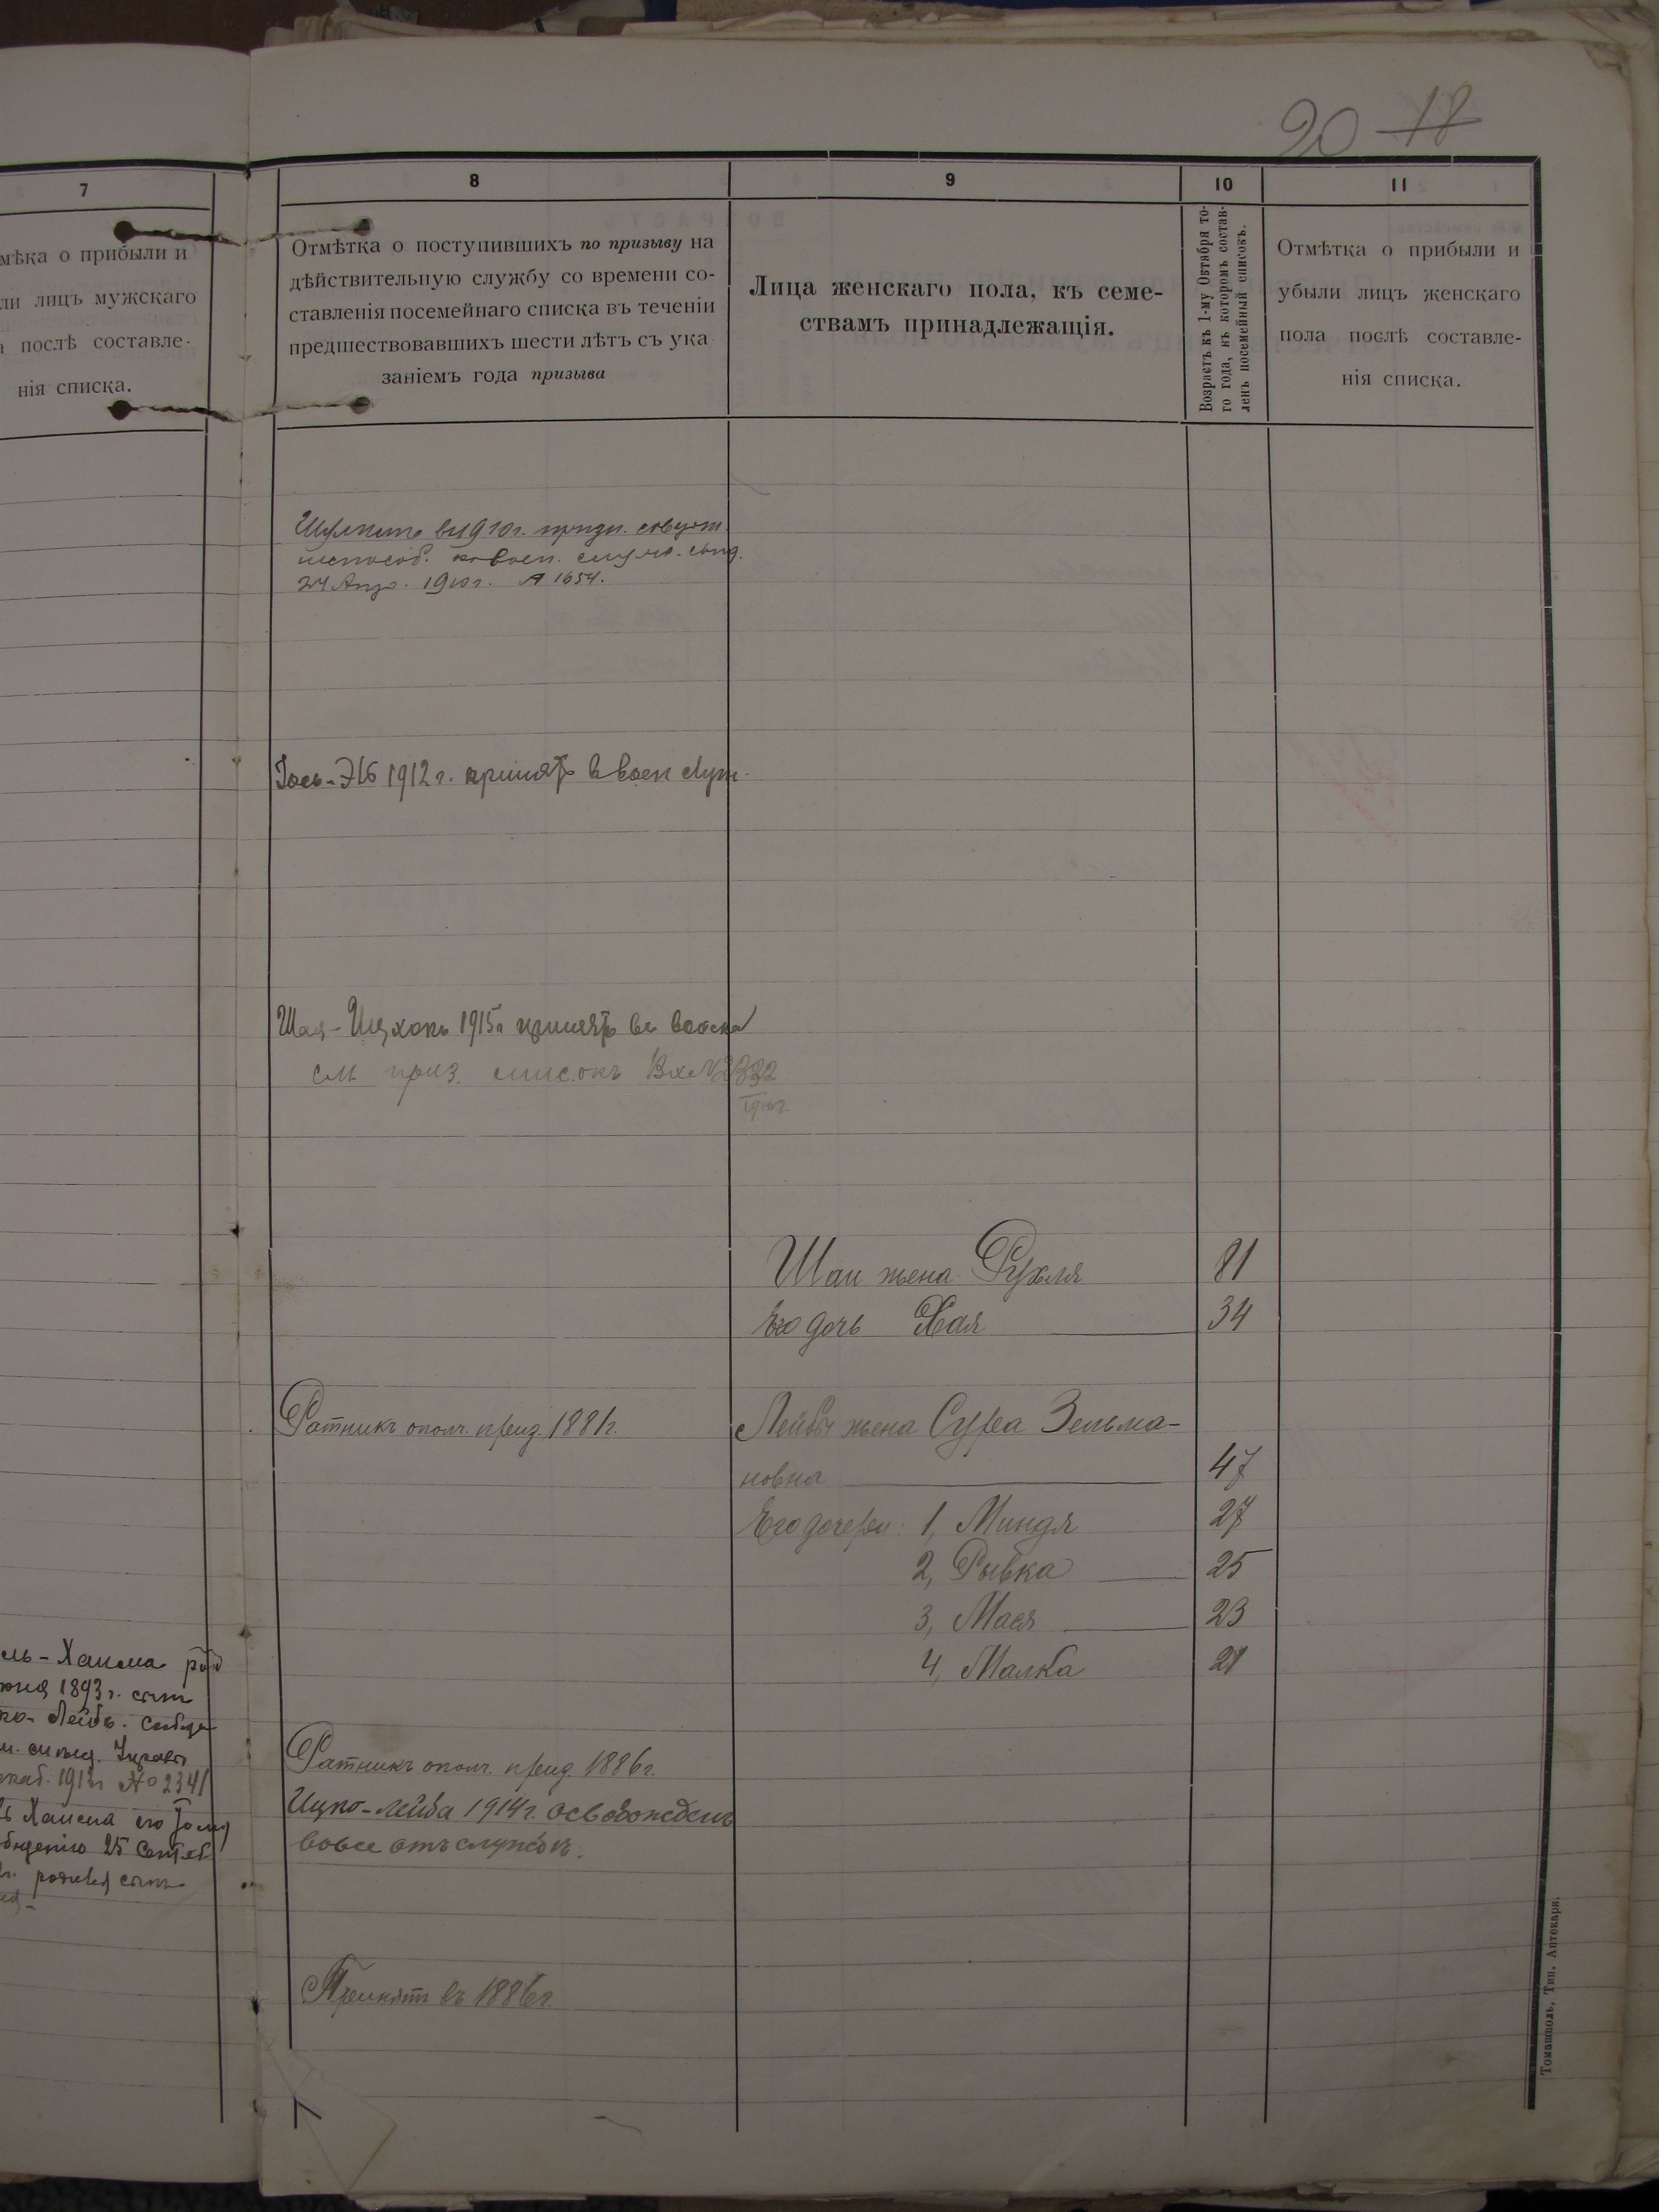 90 18
7
8
9
10
11
мѣка о прибыли и
ли лицъ мужскаго
послѣ составле-
нія списка.
Отмѣтка о поступившихъ по призыву на
дѣйствительную службу со времени со-
ставленія посемейнаго списка въ теченіи
предшествовавшихъ шести лѣтъ съ ука
заніемъ года призыва
Лица женскаго пола, къ семе-
ствамъ принадлежащія.
Возрастъ къ 1-му Октября то-
го года, къ которомъ состав-
ленъ посемейный списокъ.
Отмѣтка о прибыли и
убыли лицъ женскаго
пола послѣ составле-
нія списка.
1910г.
24 Апр. 1910г. № 1654.
1912г. принятъ в воен служ.
Шая- 1915г принятъ въ войска
см приз. списокъ Вх №2332
1916г.
Шаи жена Рухля 81
Его дочь Хая 34
Ратникъ ополч. приз. 1881г.
Лейбы жена Сура Зельма-
новна 47
Его дочери: 1, Миндя 27
2, Рывка 25
3, Мася 23
4, Малка 21
ль-Хаима
1893г. сынъ
Лейбъ.
1913г №2341
Хаима его
25 Сентяб.
сынъ
Ратникъ ополч. приз. 1886г.
Ицко-Лейба 1914г. освобожденъ
вовсе отъ службы.
Принятъ въ 1886г.
Томашполь, Тип. Аптекаря.